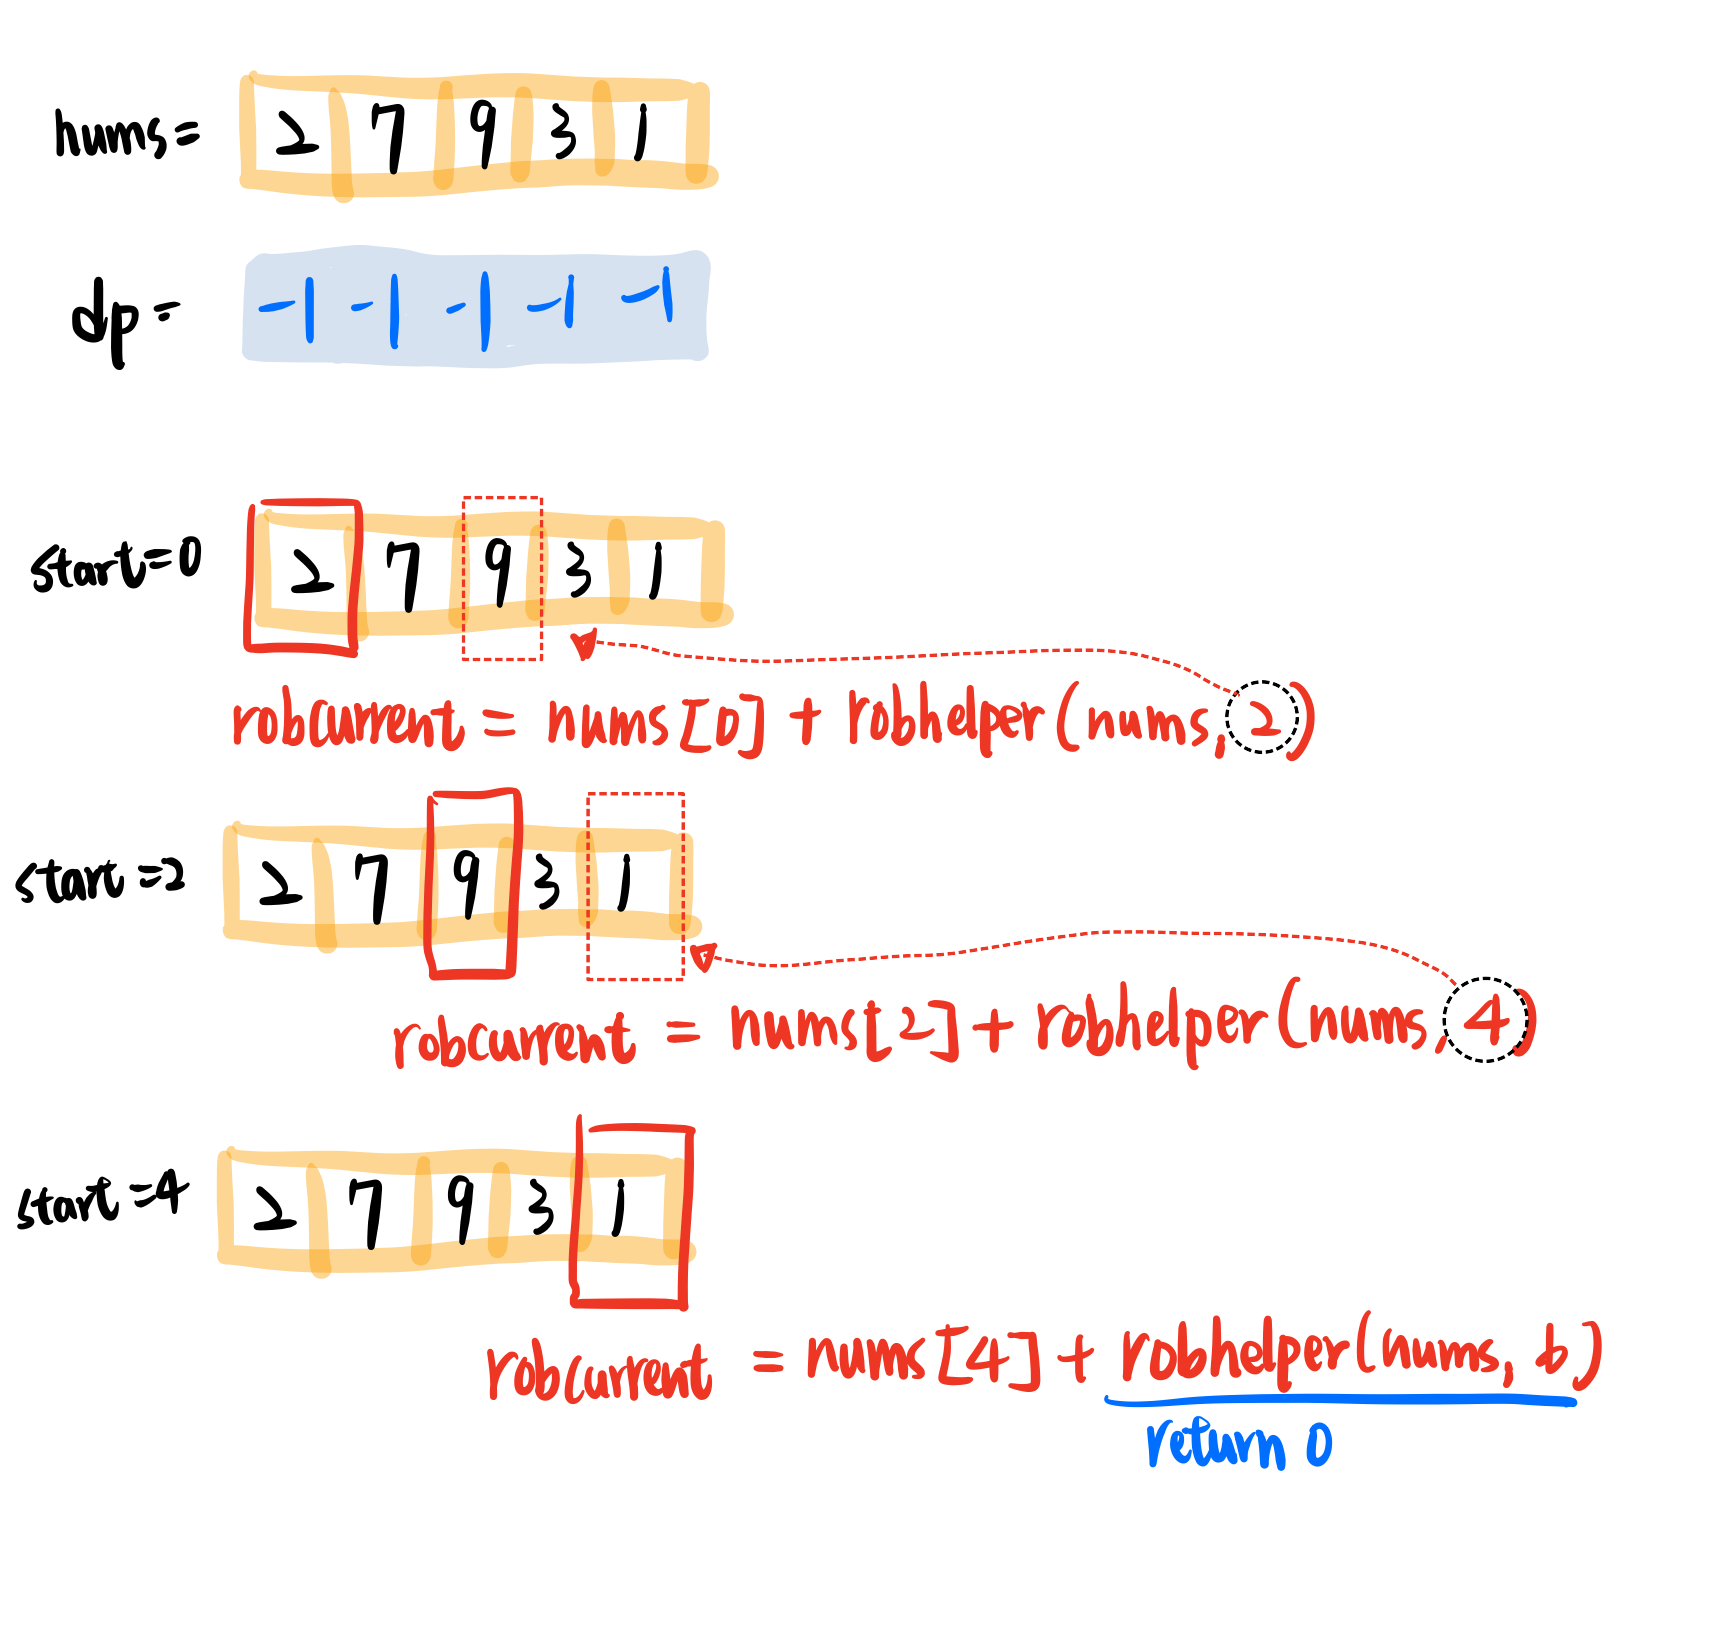 nums= 2 7 9 3 1
dp= -1 -1 -1 -1 -1
start=0 2 7 9 3 1
robcurrent = nums[0] + robhelper(nums, 2)
start=2 2 7 9 3 1
robcurrent = nums[2] + robhelper(nums, 4)
start=4 2 7 9 3 1
robcurrent = nums[4] + robhelper(nums, 6)
return 0